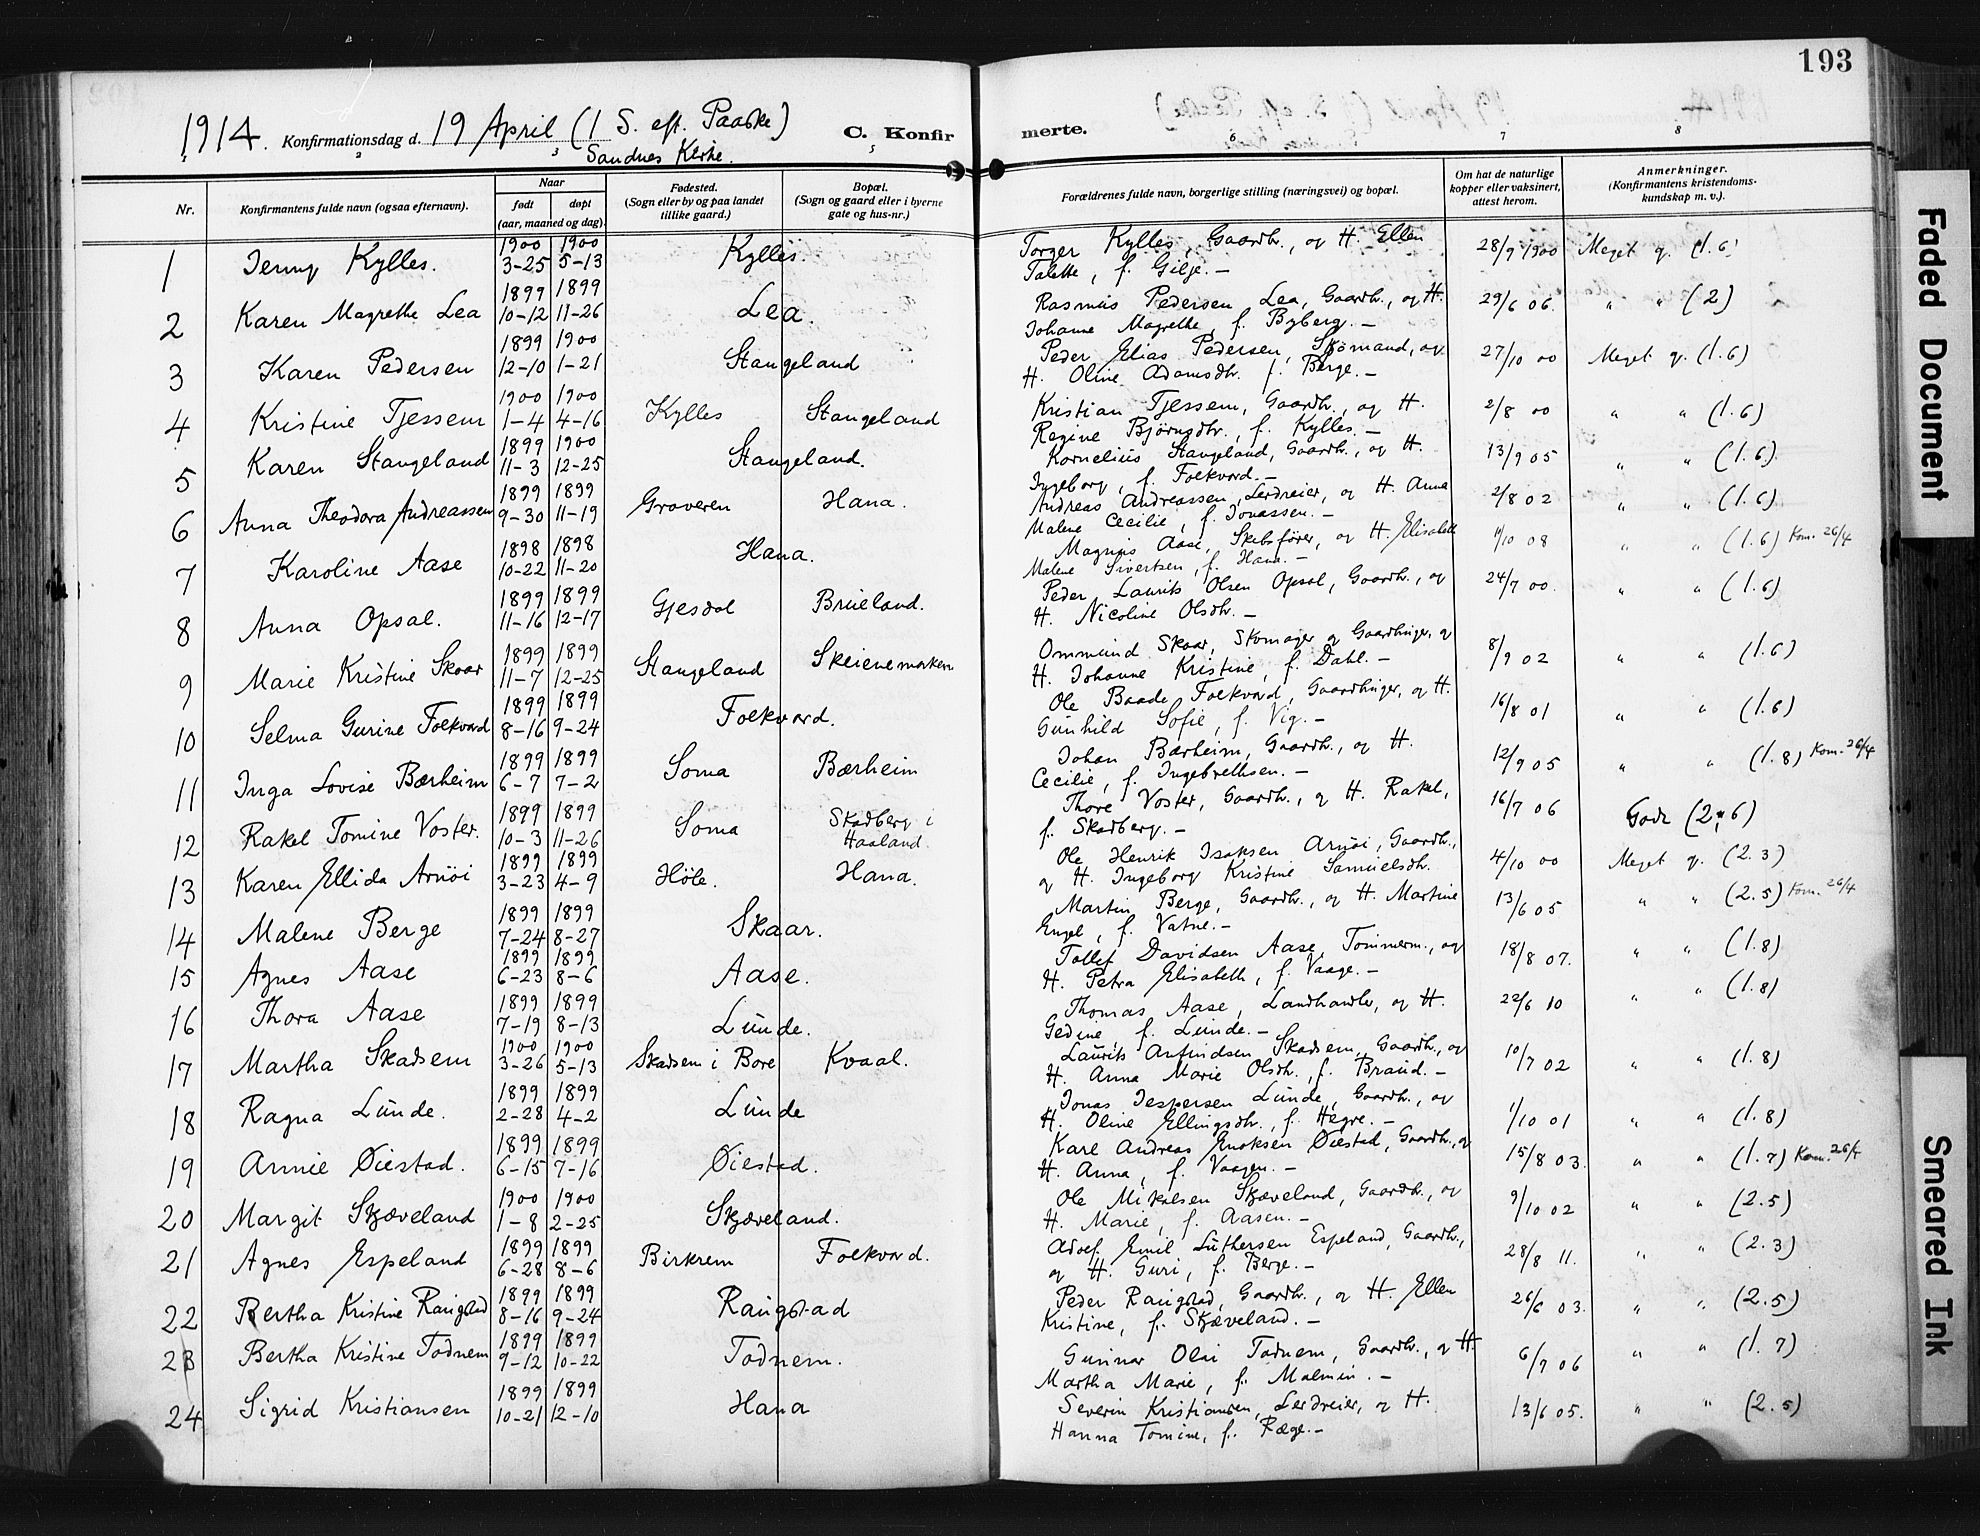 193
1914. Konfirmationsdag d. 19 April (1 S. eft. Paaske) C. Konfirmerte.
Sandnes Kirke.
2 3 5 6 7 8
Nr. Konfirmantens fulde navn (ogsaa efternavn). Naar født døpt (aar, maaned og dag). Fødested. (Sogn eller by og paa landet tillike gaard.) Bopæl. (Sogn og gaard eller i byerne gate og hus-nr.) Forældrenes fulde navn, borgerlige stilling (næringsvei) og bopæl. Om hat de naturlige kopper eller vaksinert, attest herom. Anmerkninger. (Konfirmantens kristendomskundskap m. v.).
1 Jenny Kylles. 1900 3-25 1900 5-13 Kylles. Torger Kylles, Gaardb., og H. Ellen
Talette, f. Gilje. - 28/9 1900 Meget g. (1.6)
2 Karen Magrethe Lea 1899 10-12 1899 11-26 Lea. Rasmus Pedersen Lea, Gaardb., og H.
Johanne Magrethe, f. Byberg. - 29/6 06. " " (2)
3 Karen Pedersen 1899 12-10 1900 1-21 Stangeland Peder Elias Pedersen, Sjømand, og
H. Oline Adamsdtr. f. Berge. - 27/10 00 Meget g. (1.6)
4 Kristine Tjessem 1900 1-4 1900 4-16 Kylles Stangeland Kristian Tjessem, Gaardb., og H.
Regine Bjørnsdtr., f. Kylles. - 2/8 00 " " (1.6)
5 Karen Stangeland 1899 11-3 1900 12-25 Stangeland. Kornelius Stangeland, Gaardb., og H.
Ingeborg, f. Folkvord. - 13/9 05 " " (1.6)
6 Anna Theodora Andreassen 1899 9-30 1899 11-19 Graveren Hana. Andreas Andreassen, Lerdreier, og H. Anna
Malene Cecilie, f. Jonassen. - 2/8 02 " " (1.6)
7 Karoline Aase 1898 10-22 1898 11-20 Hana. Magnus Aase, Skibsfører, og H. Elisabeth
Malene Sivertsen, f. Hana. - 11/10 08 " " (1.6) Kom. 26/4
8 Anna Opsal. 1899 11-16 1899 12-17 Gjesdal Brueland. Peder Laurits Olsen Opsal, Gaardb., og
H. Nicoline Olsdtr. - 24/7 00. " " (1.6)
9 Marie Kristine Skaar 1899 11-7 1899 12-25 Stangeland Skeienemarken Ommund Skaar, Skomager og Gaardbruger, og
H. Johanne Kristine, f. Dahl. - 8/9 02 " " (1.6)
10 Selma Gurine Folkvord 1899 8-16 1899 9-24 Folkvord. Ole Baade Folkvord, Gaardbruger, og H.
Gunhild Sofie, f. Vig. - 16/8 01 " " (1.6)
11 Inga Lovise Bærheim 1899 6-7 1899 7-2 Soma Bærheim Johan Bærheim, Gaardb., og H.
Cecilie, f. Ingebrethsen. - 12/9 05 " " (1.8) Kom. 26/4
12 Rakel Tomine Voster. 1899 10-3 1899 11-26 Soma Skadberg i Haaland. Thore Voster, Gaardb., og H. Rakel,
f. Skadberg. - 16/7 06 Godt (2.6)
13 Karen Ellida Arnøi 1899 3-23 1899 4-9 Høle. Hana. Ole Henrik Isaksen Arnøi, Gaardb.,
og H. Ingeborg Kristine Samuelsdtr. 4/10 00 Meget g. (2.3)
14 Malene Berge 1899 7-24 1899 8-27 Skaar. Martin Berge, Gaardb., og H. Martine
Engel, f. Vatne. - 13/6 05 " " (2.5) Kom. 26/4
15 Agnes Aase 1899 6-23 1899 8-6 Aase. Tollef Davidsen Aase, Tømmerm., og
H. Petra Elisabeth, f. Vaage. - 18/8 07. " " (1.8)
16 Thora Aase 1899 7-19 1899 8-13 Lunde. Thomas Aase, Landhandler, og H.
Gedine f. Lunde. - 22/6 10 " " (1.8)
17 Martha Skadsem 1900 3-26 1900 5-13 Skadsem i Bore Kvaal. Laurits Arfindsen Skadsem, Gaardb., og
H. Anna Marie Olsdtr., f. Braud. - 10/7 02 " " (1.8)
18 Ragna Lunde. 1899 2-28 1899 4-2 Lunde Jonas Jespersen Lunde, Gaardb., og
H. Oline Ellingsdtr., f. Hegre. - 1/10 01 " " (1.8)
19 Annie Øiestad. 1899 6-15 1899 7-16 Øiestad. Karl Andreas Enoksen Øiestad, Gaardb., og
H. Anna, f. Vaagen. - 15/8 03. " " (1.7) Kom. 26/4
20 Margit Skjæveland 1900 1-8 1900 2-25 Skjæveland. Ole Mikalsen Skjæveland, Gaardb., og
H. Marie, f. Aasen. - 9/10 02 " " (2.5)
21 Agnes Espeland 1899 6-28 1899 8-6 Birkrem Folkvord. Adolf Emil Luthersen Espeland, Gaardb.,
og H. Guri, f. Berge. - 28/8 11. " " (2.3)
22 Bertha Kristine Raugstad 1899 8-16 1899 9-24 Raugstad Peder Raugstad, Gaardb., og H. Ellen
Kristine, f. Skjæveland. - 26/6 03. " " (2.5)
23 Bertha Kristine Todnem 1899 9-12 1899 10-22 Todnem. Gunnar Olai Todnem, Gaardb., og H.
Martha Marie, f. Malmin. - 6/7 06 " " (1.7)
24 Sigrid Kristiansen 1899 10-21 1899 12-10 Hana Severin Kristiansen, Lerdreier, og H.
Hanna Tomine, f. Ræge. - 13/6 05. " " (2.5)
Faded Document
Smeared Ink